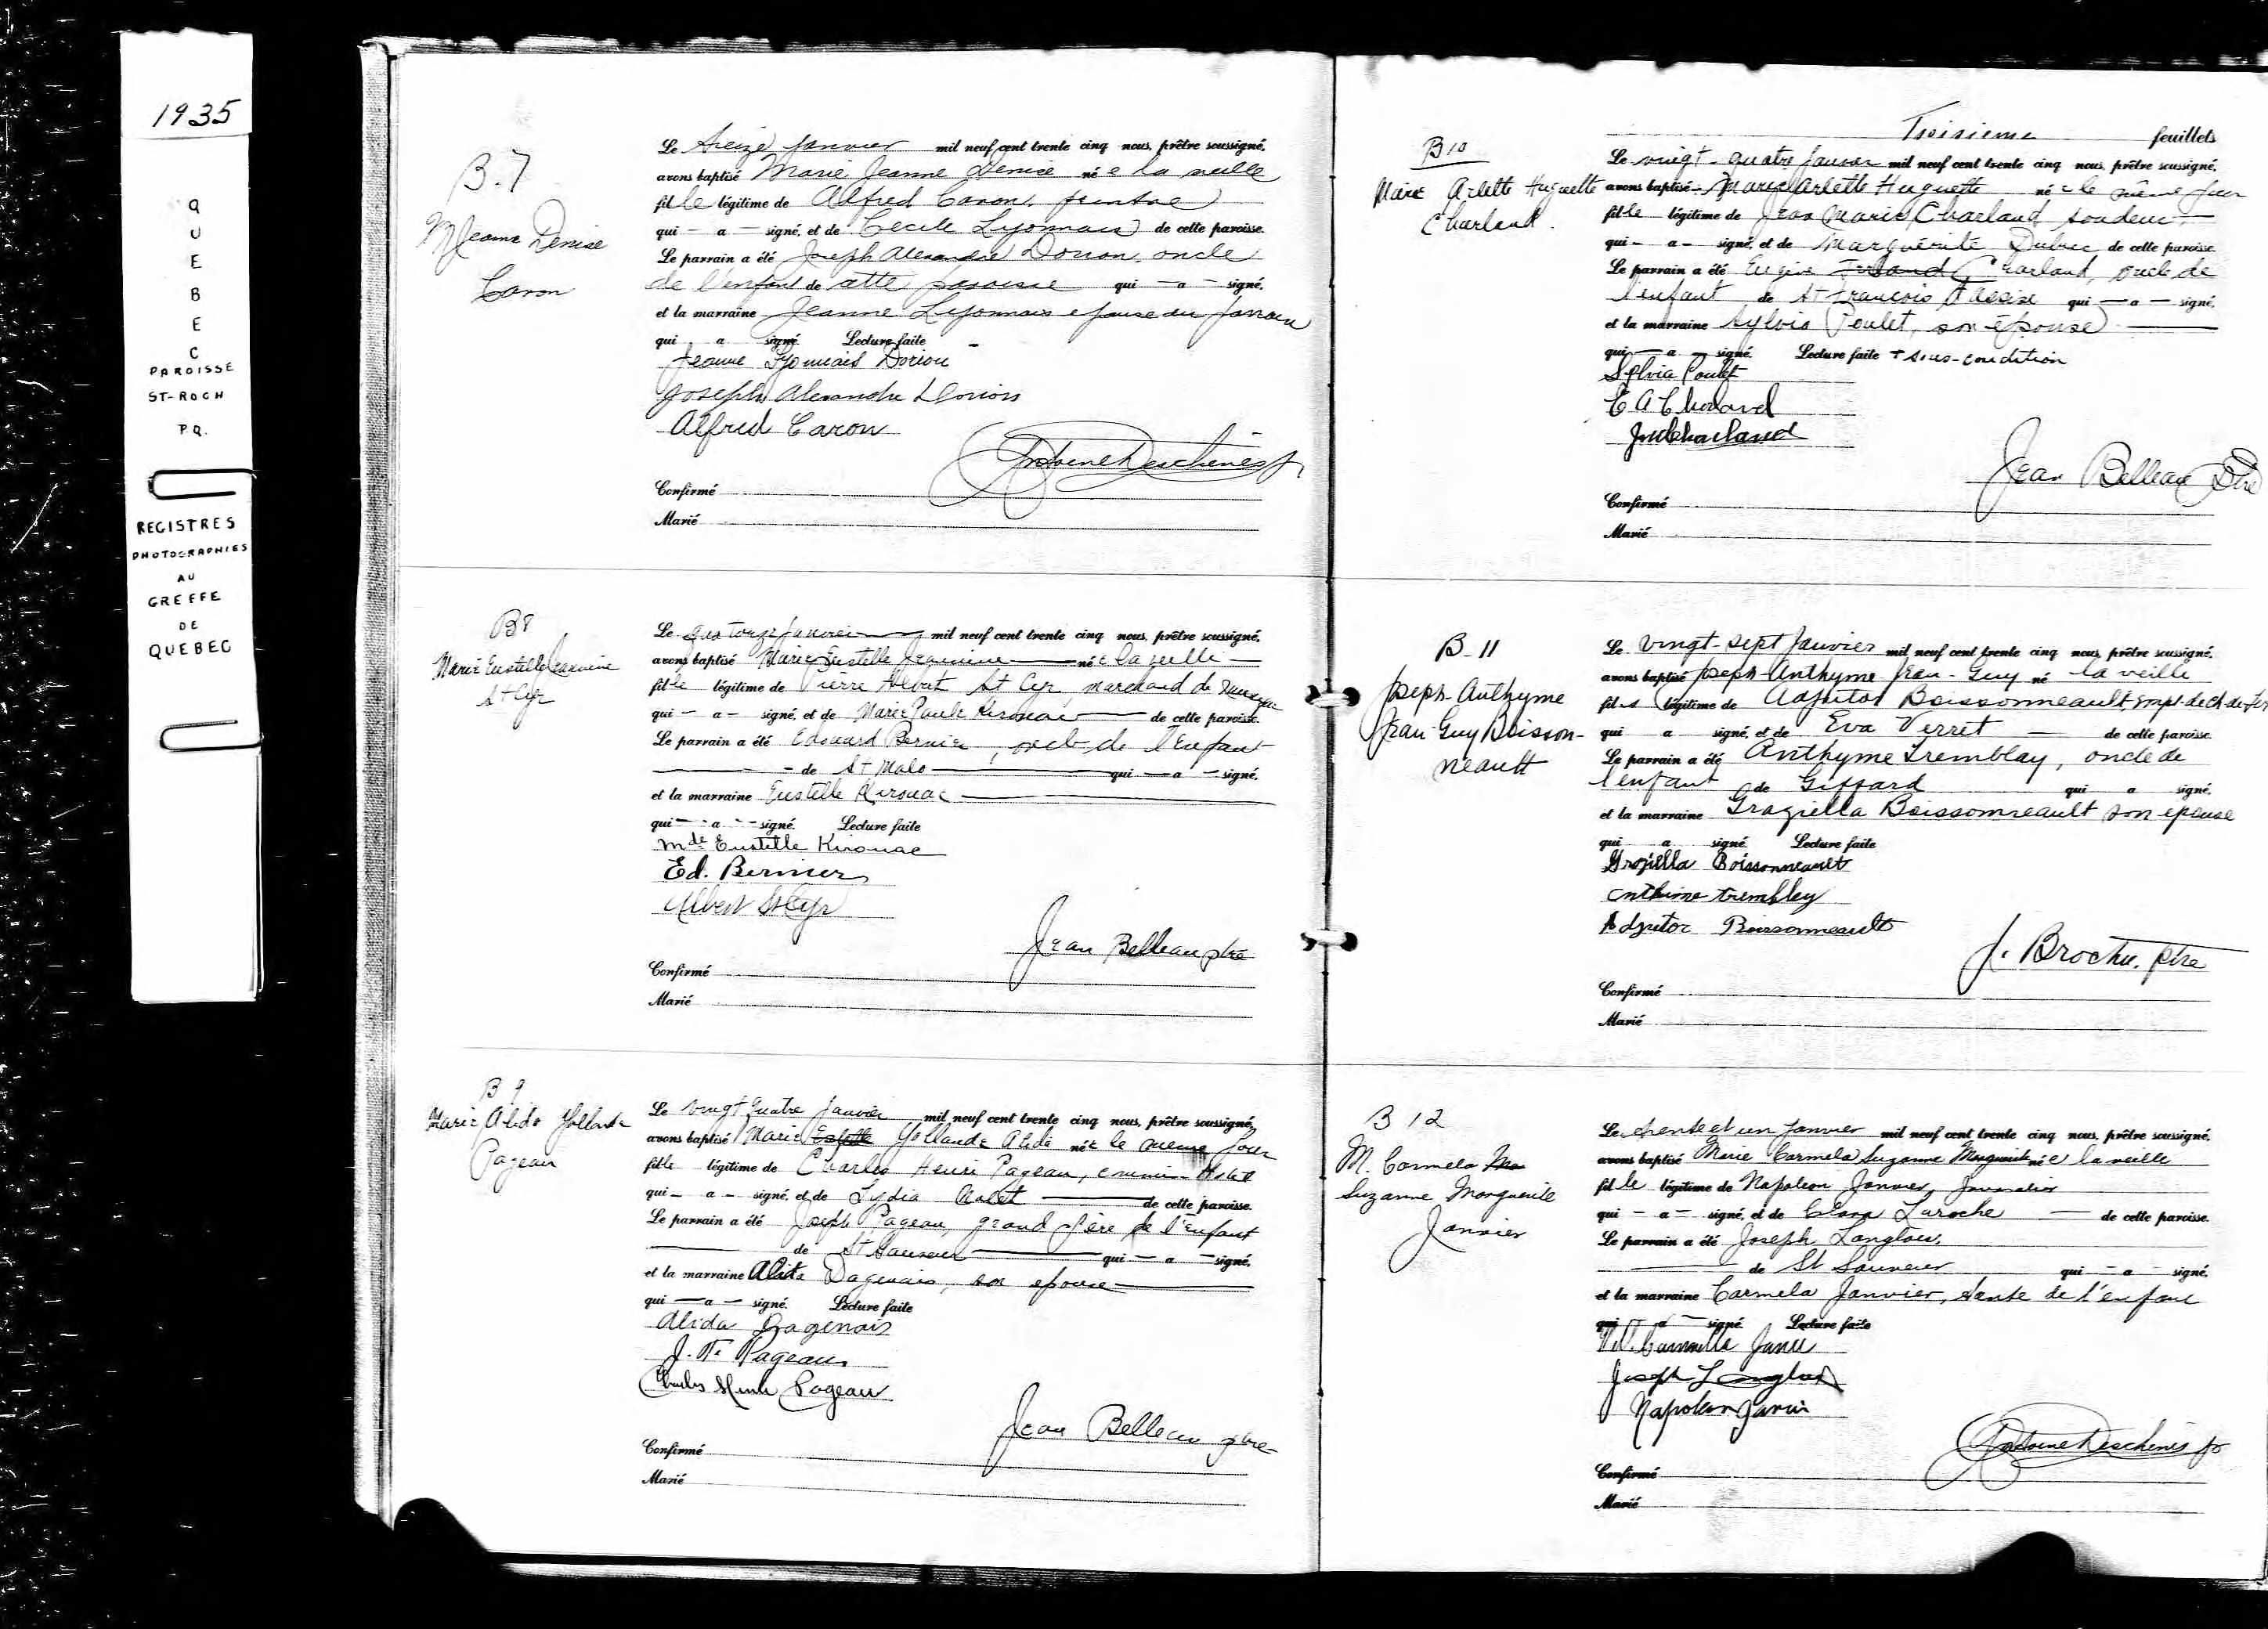 1935
QUEBEC
PAROISSE
ST-ROCH
P.Q.
REGISTRES
PHOTOGRAPHIES
AU
GREFFE
DE
QUEBEC
B.7
M Jeanne Denise
Caron
Le treize janvier mil neuf cent trente cinq nous, prêtre soussigné,
avons baptisé Marie Jeanne Denise née la veille
fille légitime de Alfred Caron, peintre
qui - a - signé, et de Cecile Lyonnais de cette paroisse.
Le parrain a été Joseph Alexandre Dorion, oncle
de l'enfant de cette paroisse qui - a - signé,
et la marraine Jeanne Lyonnais epouse du parrain
qui a signé. Lecture faite
Jeanne Lyonnais Dorion
Joseph Alexandre Dorion
Alfred Caron
Antoine Deschênes
Confirmé
Marié
B8
Marie Eustelle Jeannine
St Cyr
Le quatorze janvier mil neuf cent trente cinq nous, prêtre soussigné,
avons baptisé Marie Eustelle Jeannine née la veille
fille légitime de Pierre Albert St Cyr marchand de
qui - a - signé, et de Marie Paule Kirouac de cette paroisse.
Le parrain a été Edouard Bernier, oncle de l'enfant
de St Malo qui - a - signé,
et la marraine Eustelle Kirouac
qui - a - signé. Lecture faite
Mde Eustelle Kirouac
Ed. Bernier
Albert St Cyr
Jean Belleau ptre
Confirmé
Marié
B 9
Marie Alida Yollande
Pageau
Le vingt quatre janvier mil neuf cent trente cinq nous, prêtre soussigné,
avons baptisé Marie Yollande Alida née le meme jour
fille légitime de Charles Henri Pageau,
qui - a - signé, et de Lydia de cette paroisse.
Le parrain a été Joseph Pageau, grand père de l'enfant
de St Sauveur qui - a - signé,
et la marraine Alida Dagenais, son epouse
qui - a - signé. Lecture faite
Alida Dagenais
J. Pageau
Charles Henri Pageau
Jean Belleau ptre
Confirmé
Marié
Troisieme feuillets
B10
Marie Arlette Huguette
Charland.
Le vingt-quatre janvier mil neuf cent trente cinq nous, prêtre soussigné,
avons baptisé + Marie Arlette Huguette née le même jour
fille légitime de Jean Marie Charland soudeur
qui - a - signé, et de Marguérite Dubuc de cette paroisse.
Le parrain a été Eugène Charland, oncle de
l'enfant de St François d'Assise qui - a - signé,
et la marraine Sylvia Poulet, son épouse
qui - a - signé. Lecture faite + sous-condition
Sylvia Poulet
E A Charland
J M Charland
Jean Belleau Ptre
Confirmé
Marié
B-11
Joseph-Anthyme
Jean-Guy Boisson-
neault
Le vingt-sept janvier mil neuf cent trente cinq nous, prêtre soussigné,
avons baptisé Joseph-Anthyme Jean-Guy né la veille
fils légitime de Adjutor Boissonneault empl. de ch. de fer
qui a signé, et de Eva Verret de cette paroisse.
Le parrain a été Anthyme Tremblay, oncle de
l'enfant de Giffard qui a signé,
et la marraine Graziella Boissonneault son epouse
qui a signé. Lecture faite
Graziella Boissonneault
Anthime Trembley
Adjutor Boissonneault
J. Brochu, ptre
Confirmé
Marié
B 12
M. Carmela
Suzanne Marguerite
Janvier
Le trente et un janvier mil neuf cent trente cinq nous, prêtre soussigné,
avons baptisé Marie Carmela Suzanne Marguerite née la veille
fille légitime de Napoleon Janvier, journalier
qui - a - signé, et de Clara Laroche de cette paroisse.
Le parrain a été Joseph Langlois,
de St Sauveur qui - a - signé,
et la marraine Carmela Janvier, tante de l'enfant
qui - a - signé. Lecture faite
Joseph Langlois
Napoleon Janvier
Antoine Deschênes
Confirmé
Marié